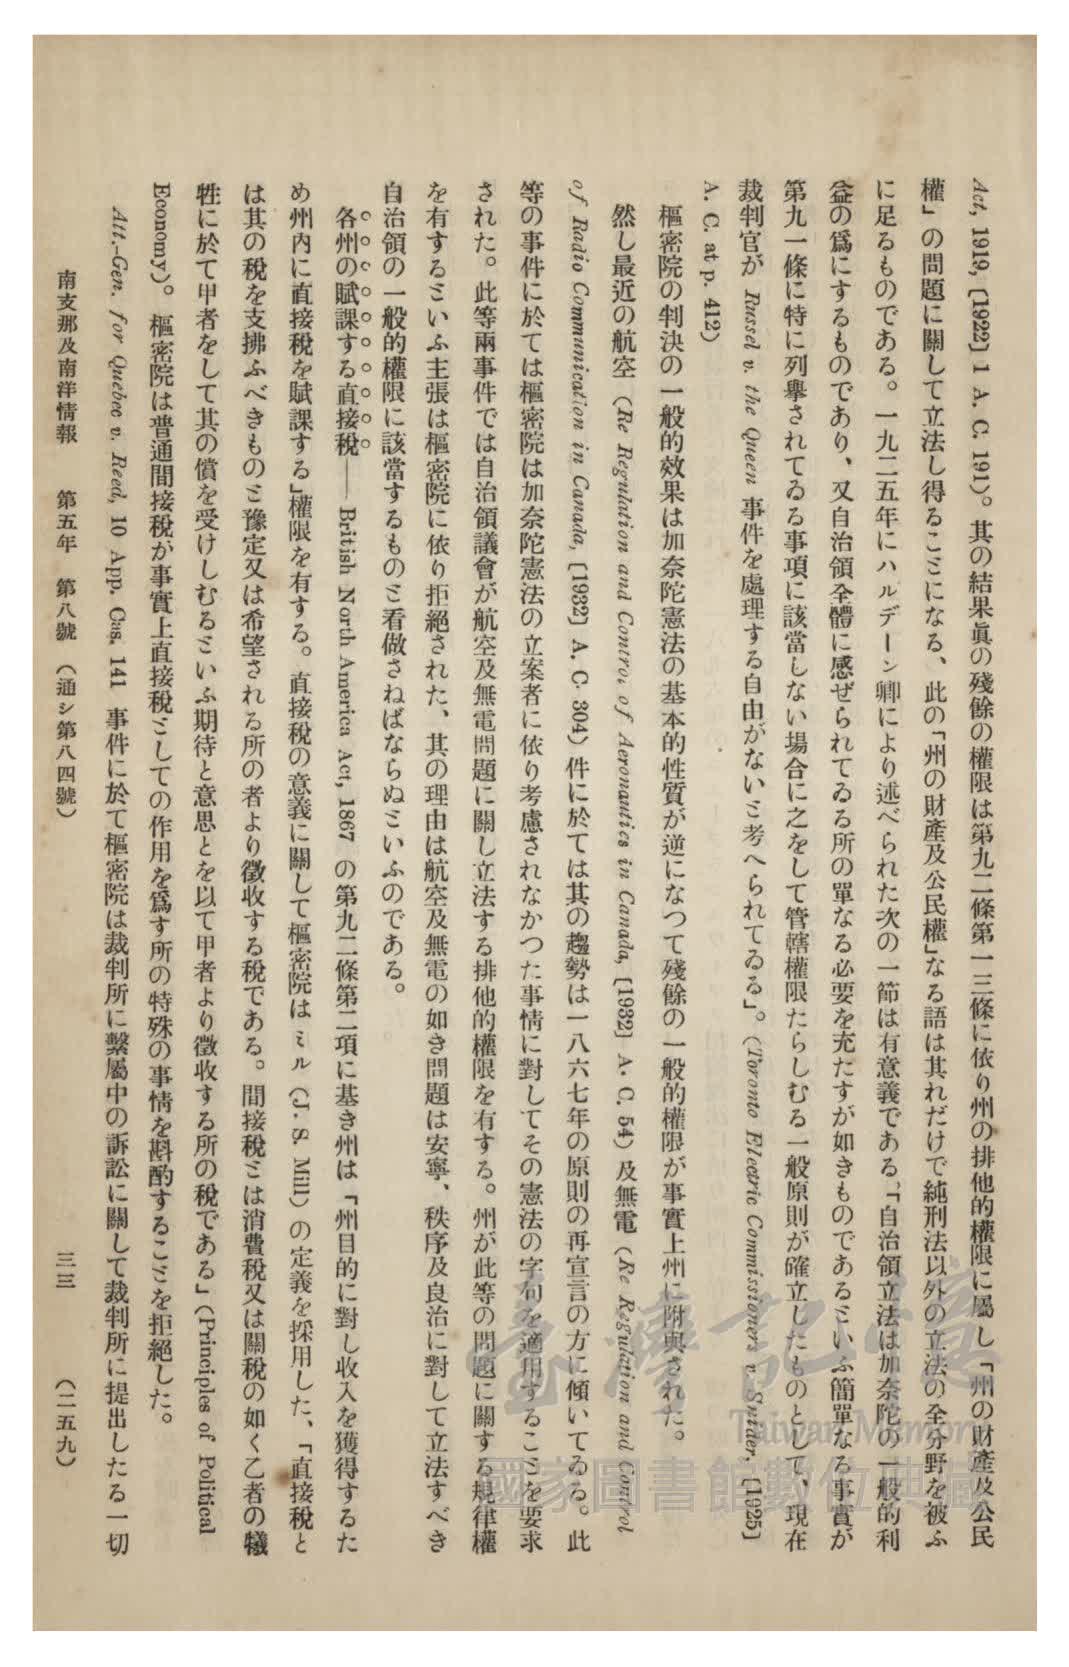 Act, 1919, [1922] 1 A. C. 191)。其の結果眞の殘餘の權限は第九二條第一三條に依り州の排他的權限に屬し「州の財產及公民
權」の問題に關して立法し得ることになる、此の「州の財產及公民權」なる語は其れだけで純刑法以外の立法の全分野を被ふ
に足るものである。一九二五年にハルデーン卿により述べられた次の一節は有意義である、「自治領立法は加奈陀の一般的利
益の爲にするものであり、又自治領全體に感ぜられてゐる所の單なる必要を充たすが如きものであるといふ簡單なる事實が
第九一條に特に列擧されてゐる事項に該當しない場合に之をして管轄權限たらしむる一般原則が確立したものとして、現在
裁判官が Russel v. the Queen 事件を處理する自由がないと考へられてゐる」。(Toronto Electric Commissioners v. Snider, [1925]
A. C. at p. 412)
樞密院の判決の一般的效果は加奈陀憲法の基本的性質が逆になつて殘餘の一般的權限が事實上州に附與された。
然し最近の航空 (Re Regulation and Control of Aeronautics in Canada, [1932] A. C. 54) 及無電 (Re Regulation and Control
of Radio Communication in Canada, [1932] A. C. 304) 件に於ては其の趨勢は一八六七年の原則の再宣言の方に傾いてゐる。此
等の事件に於ては樞密院は加奈陀憲法の立案者に依り考慮されなかつた事情に對してその憲法の字句を適用することを要求
された。此等兩事件では自治領議會が航空及無電問題に關し立法する排他的權限を有する。州が此等の問題に關する規律權
を有するといふ主張は樞密院に依り拒絕された、其の理由は航空及無電の如き問題は安寧、秩序及良治に對して立法すべき
自治領の一般的權限に該當するものと看做さねばならぬといふのである。
各州の賦課する直接稅—— British North America Act, 1867 の第九二條第二項に基き州は「州目的に對し收入を獲得するた
め州內に直接稅を賦課する」權限を有する。直接稅の意義に關して樞密院は ミル (J. S. Mill) の定義を採用した、「直接稅と
は其の稅を支拂ふべきものと豫定又は希望される所の者より徵收する稅である。間接稅とは消費稅又は關稅の如く乙者の犧
牲に於て甲者をして其の償を受けしむるといふ期待と意思とを以て甲者より徵收する所の稅である」(Principles of Political
Economy)。樞密院は普通間接稅が事實上直接稅としての作用を爲す所の特殊の事情を斟酌することを拒絕した。
Att.-Gen. for Quebec v. Reed, 10 App. Cas. 141 事件に於て樞密院は裁判所に繫屬中の訴訟に關して裁判所に提出したる一切
南支那及南洋情報 第五年 第八號 (通シ第八四號) 三三 (二五九)
臺灣記憶
Taiwan Memory
國家圖書館數位典藏